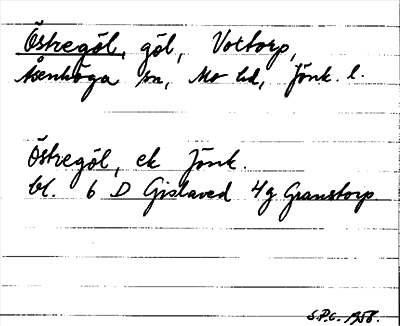 Östregöl, göl, Vottorp,
Åsenhöga sn, Mo hd, Jönk. l.
Östregöl, ek Jönk.
bl. 6 D Gislaved 4g Granstorp
S.P.G. 1958.